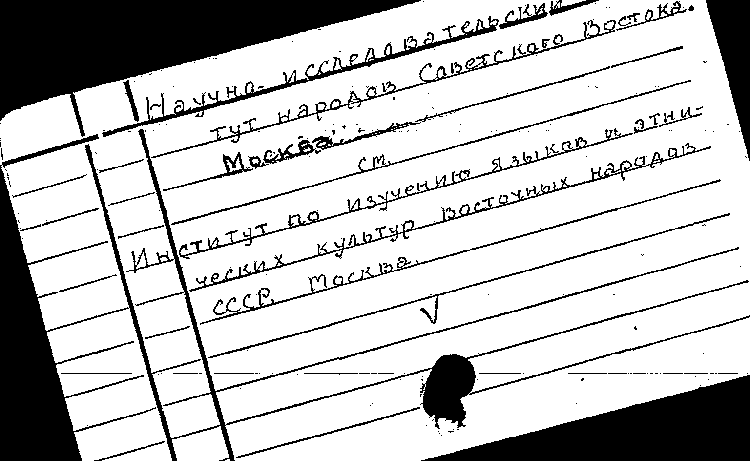 Научно-исследовательский
тут народов Советского Востока.
Москва.
см.
Институт по изучению языков и этни-
ческих культур восточных народов
СССР. Москва.